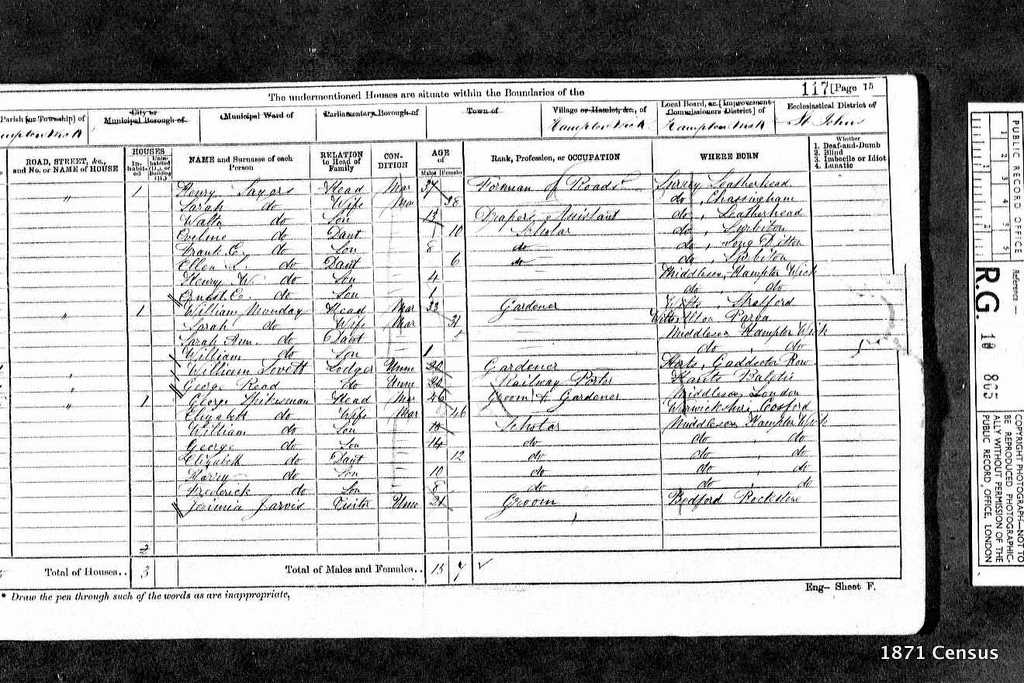 The undermentioned Houses are situate within the Boundaries of the
117 [Page 15
Parish [or Township] of
City or Municipal Borough of
Municipal Ward of
Parliamentary Borough of
Town of
Village or Hamlet, &c., of
Hampton Wick
Local Board, or [Improvement Commissioners District] of
Hampton Wick
Ecclesiastical District of
St. Johns
ROAD, STREET, &c., and No. or NAME of HOUSE
HOUSES
NAME and Surname of each Person
RELATION to Head of Family
CONDITION
AGE of
Males Females
Rank, Profession, or OCCUPATION
WHERE BORN
Whether
1. Deaf-and-Dumb
2. Blind
3. Imbecile or Idiot
4. Lunatic
" 1 Henry Sayers Head Mar 37 Forman of Roads Surrey Leatherhead
Sarah do Wife Mar 38 do, Chessingham
Walter do Son 15 Drapers Assistant do, Leatherhead
Eveline do Daut 10 Scholar do, Surbiton
Frank E. do Son 8 do do, Long Ditton
Ellen L. do Daut 6 do do, Surbiton
Henry W. do Son 4 Middlesex, Hampton Wick
Ernest E. do Son 1 do, do
" 1 William Monday Head Mar 33 Gardener
Sarah do Wife Mar 31
Sarah Ann. do Daut Middlesex Hampton Wick
William do Son 1 do do
" William Lovett Lodger Unm 20 Gardener Herts, Gaddesden Row
" George Read do Unm 20 Railway Porter Hants
" 1 George Head Mar 46 Groom & Gardener Middlesex London
Elizabeth do Wife Mar 46 Warwickshire
William do Son Scholar Middlesex Hampton Wick
George do Son 14 do do do
Elizabeth do Daut 12 do do do
Harry do Son 10 do do do
Frederick do Son 8 do do do
Jarvis Visitor Unm 21 Groom Bedford
Total of Houses.. 3
Total of Males and Females.. 15 7
* Draw the pen through such of the words as are inappropriate,
Eng— Sheet F.
PUBLIC RECORD OFFICE
Reference :—
R.G. 10 865
COPYRIGHT PHOTOGRAPH—NOT TO
BE REPRODUCED PHOTOGRAPHIC-
ALLY WITHOUT PERMISSION OF THE
PUBLIC RECORD OFFICE, LONDON
1871 Census